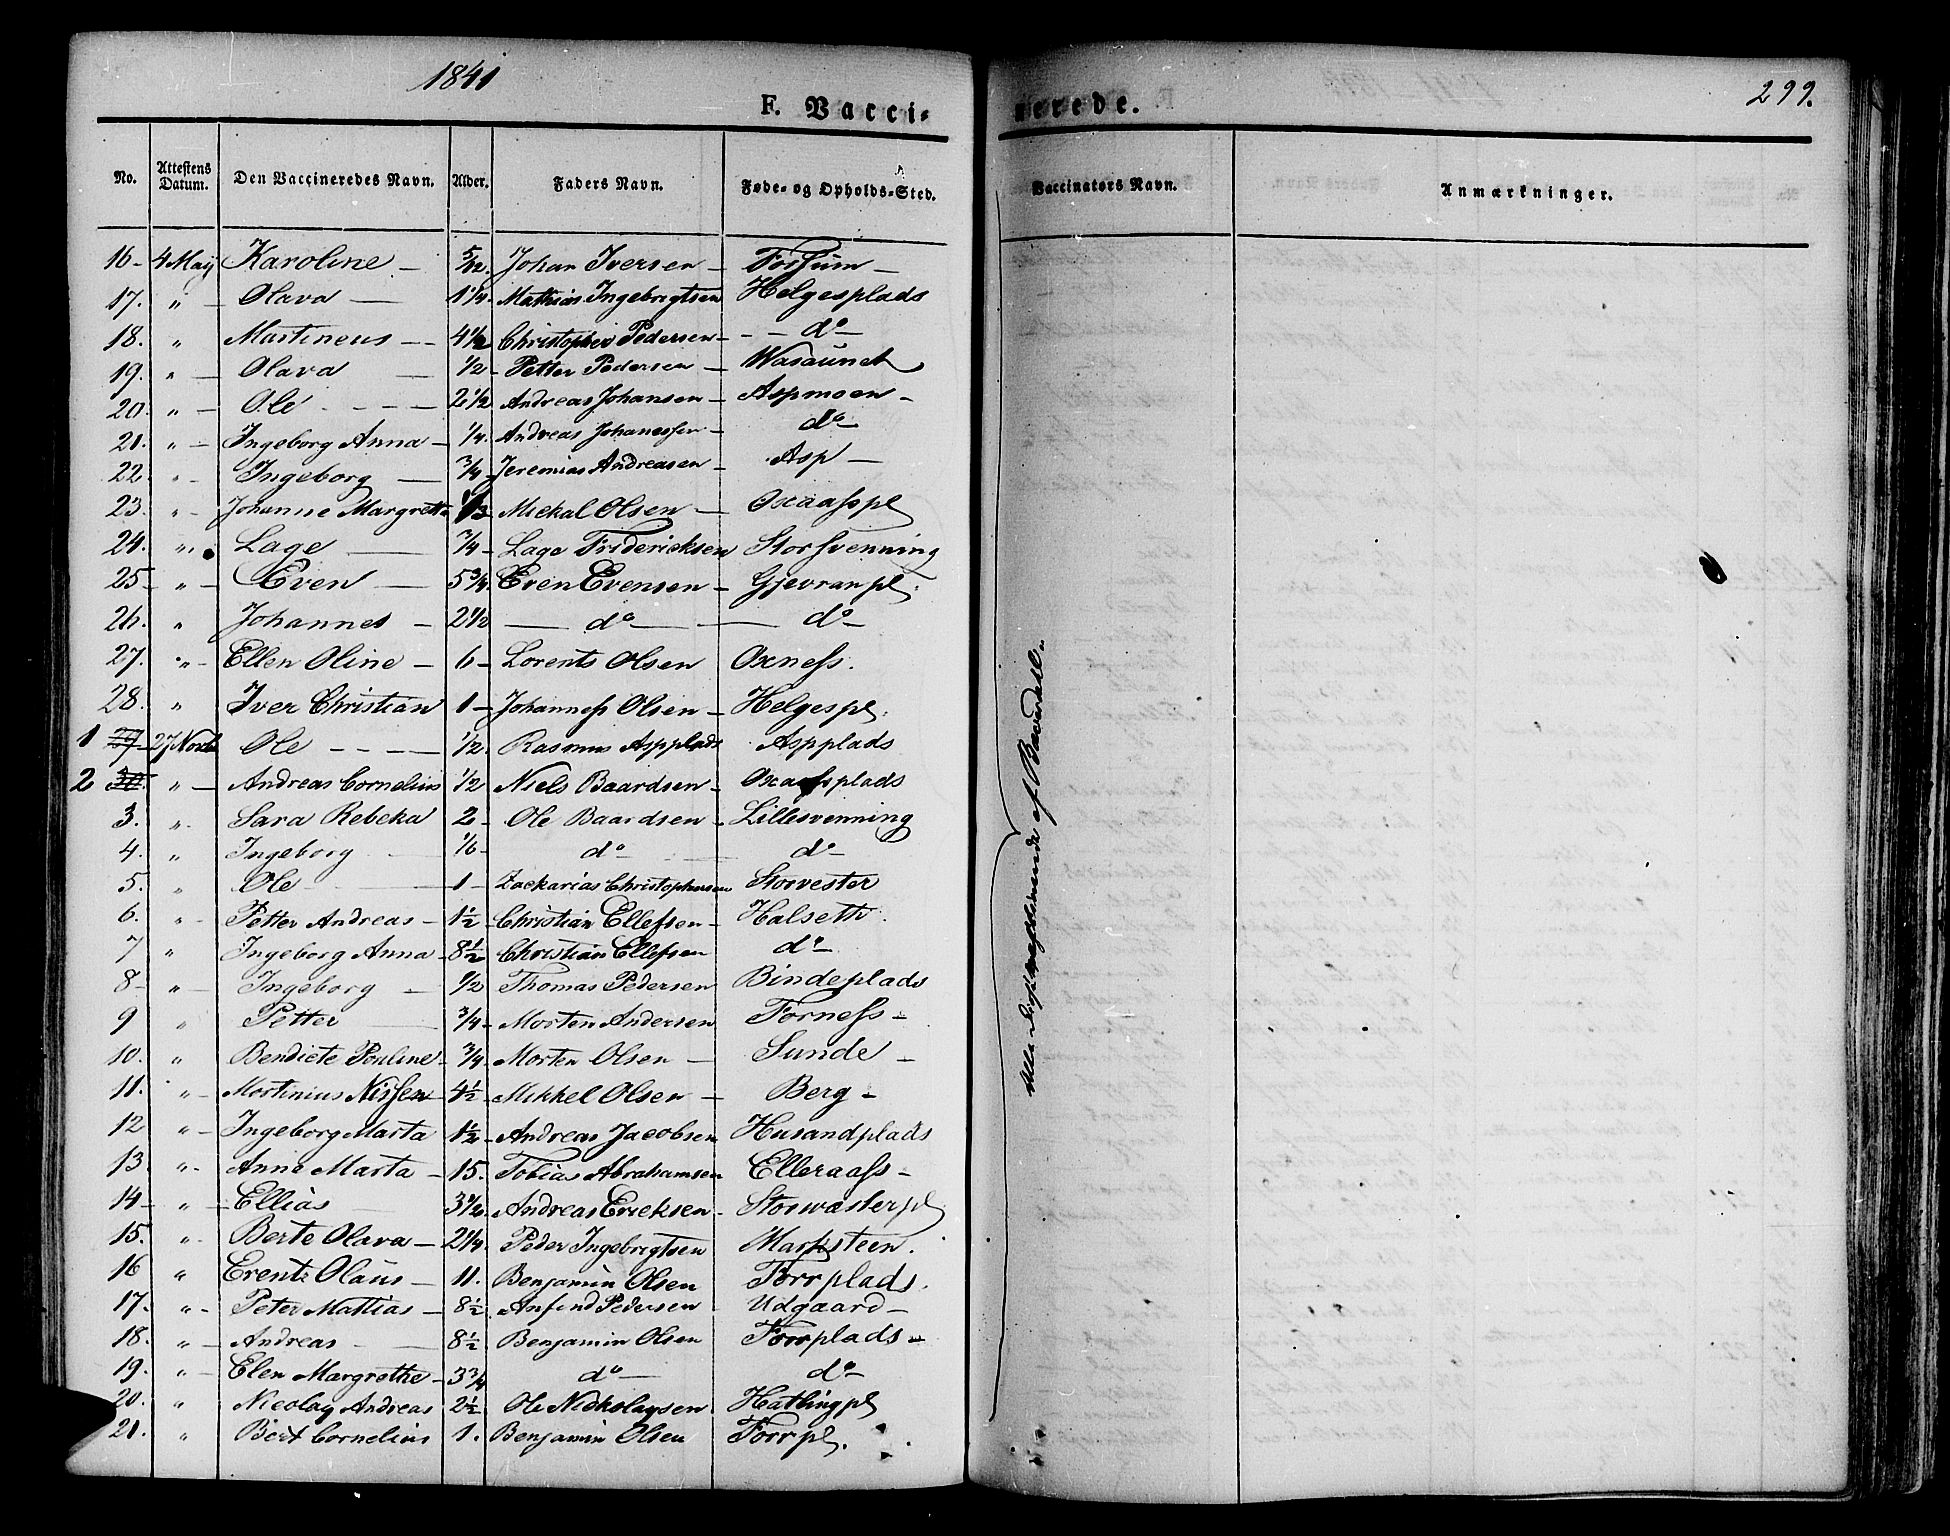 1841
F. Vacci-
nerede.
299.
No. Attestens Datum. Den Vaccineredes Navn. Alder. Faders Navn. Føde- og Opholds-Sted. Vaccinators Navn. Anmærkninger.
16 - 4 May Karoline - 5/12. Johan Iversen - Forsum -
17. " - Olava - 1 1/4 - Mathias Ingebrigtsen Helgesplads
18. " Martineus - - 4 1/2 Christopher Pedersen - - do -
19. " - Olava - 1/2 - Petter Pedersen - Wasaunet
20. " - Ole - - - 2 1/2 Andreas Johansen - Aspmoen -
21. " - Ingeborg Anna - 1/4. Andreas Johanesen - do -
22. " - Ingeborg - 3/4 - Jeremias Andreasen - Asp -
23. " - Johanne Margrethe Mickal Olsen - Oxaaspl
24. " Lage - 3/4 - Lage Fridericksen Storsvenning
25 - " - Even - 5 3/4 Even Evensen - Gjevranpl.
26. " Johannes - 2 1/2 - do - do -
27. " - Ellen Oline - 6 - Lorents Olsen Oxness.
28. " Iver Christian 1 - Johanness Olsen - Helgespl.
1 29. - 27 Novb Ole - - - 1/2. Rasmus Aspplads Aspplads
2 30. " - Andreas Cornelius 1/2 Niels Baardsen - Oxaasplads
3. " - Sara Rebeka 2 - Ole Baardsen - Lillesvenning
4. " Ingeborg 1/6 - do - do -
5. " Ole 1 - Zackarias Christophersen Storvester
6. " - Petter Andreas - 1 1/2 - Christian Ellefsen - Halseth.
7 " Ingeborg Anna - 8 1/2 Christian Ellefsen do -
8 - " - Ingeborg - 1/2 Thomas Pedersen Bindeplads
9 " Petter 3/4 - Morten Andersen Forness -
10. " Bendicte Pouline - 3/4 Morten Olsen - Sunde -
11. " - Mortinius Nissen 4 1/2 - Mikkel Olsen - Berg -
12 " - Ingeborg Marta 1 1/2 - Andreas Jacobsen Husandplads
13. " - Anne Marta - 15. Tobias Abrahamsen Elleraass -
14 - " - Ellias 3 1/2. Andreas Ericksen - Storwæsterpl
15. " - Berte Olava - 2 1/4. Peder Ingebrigtsen Marksteen.
16 " Erents Olaus - 11. Benjamin Olsen Forrplads.
17. " - Peter Mattias - 8 1/2 - Anfind Pedersen - Udgaard -
18. " - Andreas - 8 1/2 - Benjamin Olsen Forrplads -
19. " - Elen Margrethe - 3 3/4 do - do -
20. " Nicolay Andreas 2 1/2. Ole Nickolaysen Hatlingpl
21. " Bert Cornelius 1. Benjamin Olsen Forrpl.
Alle af Baardahl.